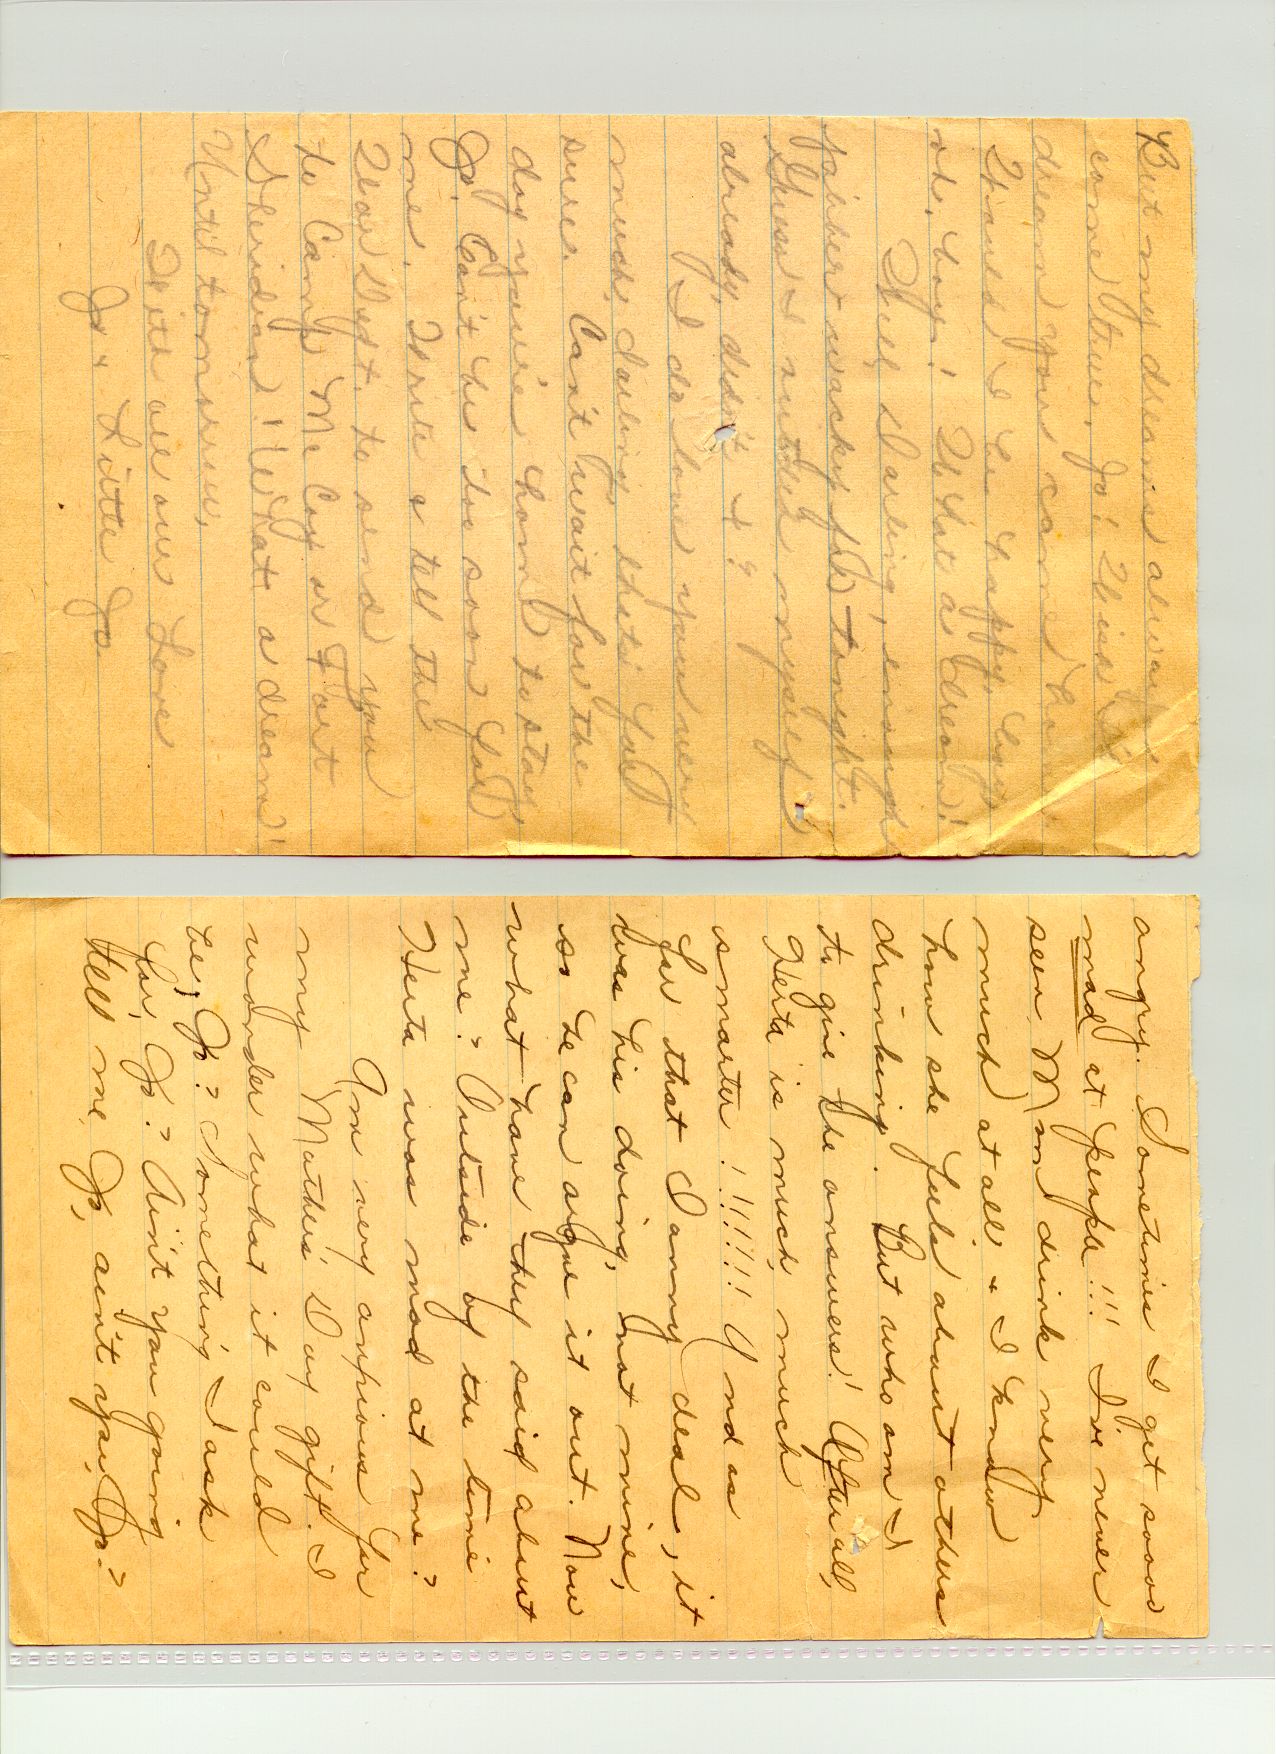 But my dreams always
come true, Jo! Wish this
dream you came home
Would I be happy, boy
oh, boy! What a dream!
Well, Darling, enough
fibber wackey for tonight.
Guess I outdid myself
already, didn't I?
I do love you very
much, darling, that's for
sure. Can't wait for the
day you're home to stay,
Jo. Can't be too soon for
me. Write & tell the
War Dept. to send you
to Camp McCoy or Fort
Sheridan! What a dream!
Until tomorrow,
With all our Love
Jo & Little Jo.
angry. Sometimes I get soooo
mad at people!!! I've never
seen Mom drink very
much at all & I know
how she feels about others
drinking. But who am I
to give the answers! After all,
Herta is much, much
smarter!!!!!!! And as
for that Danny deal, it
was his doing, not mine,
so he can argue it out. Now
what have they said about
me? Outside of the time
Herta was mad at me?
Am very anxious for
my Mother's Day gift. I
wonder what it could
be, Jo? Something I ask
for, Jo? Ain't you going
tell me, Jo, ain't you, Jo?